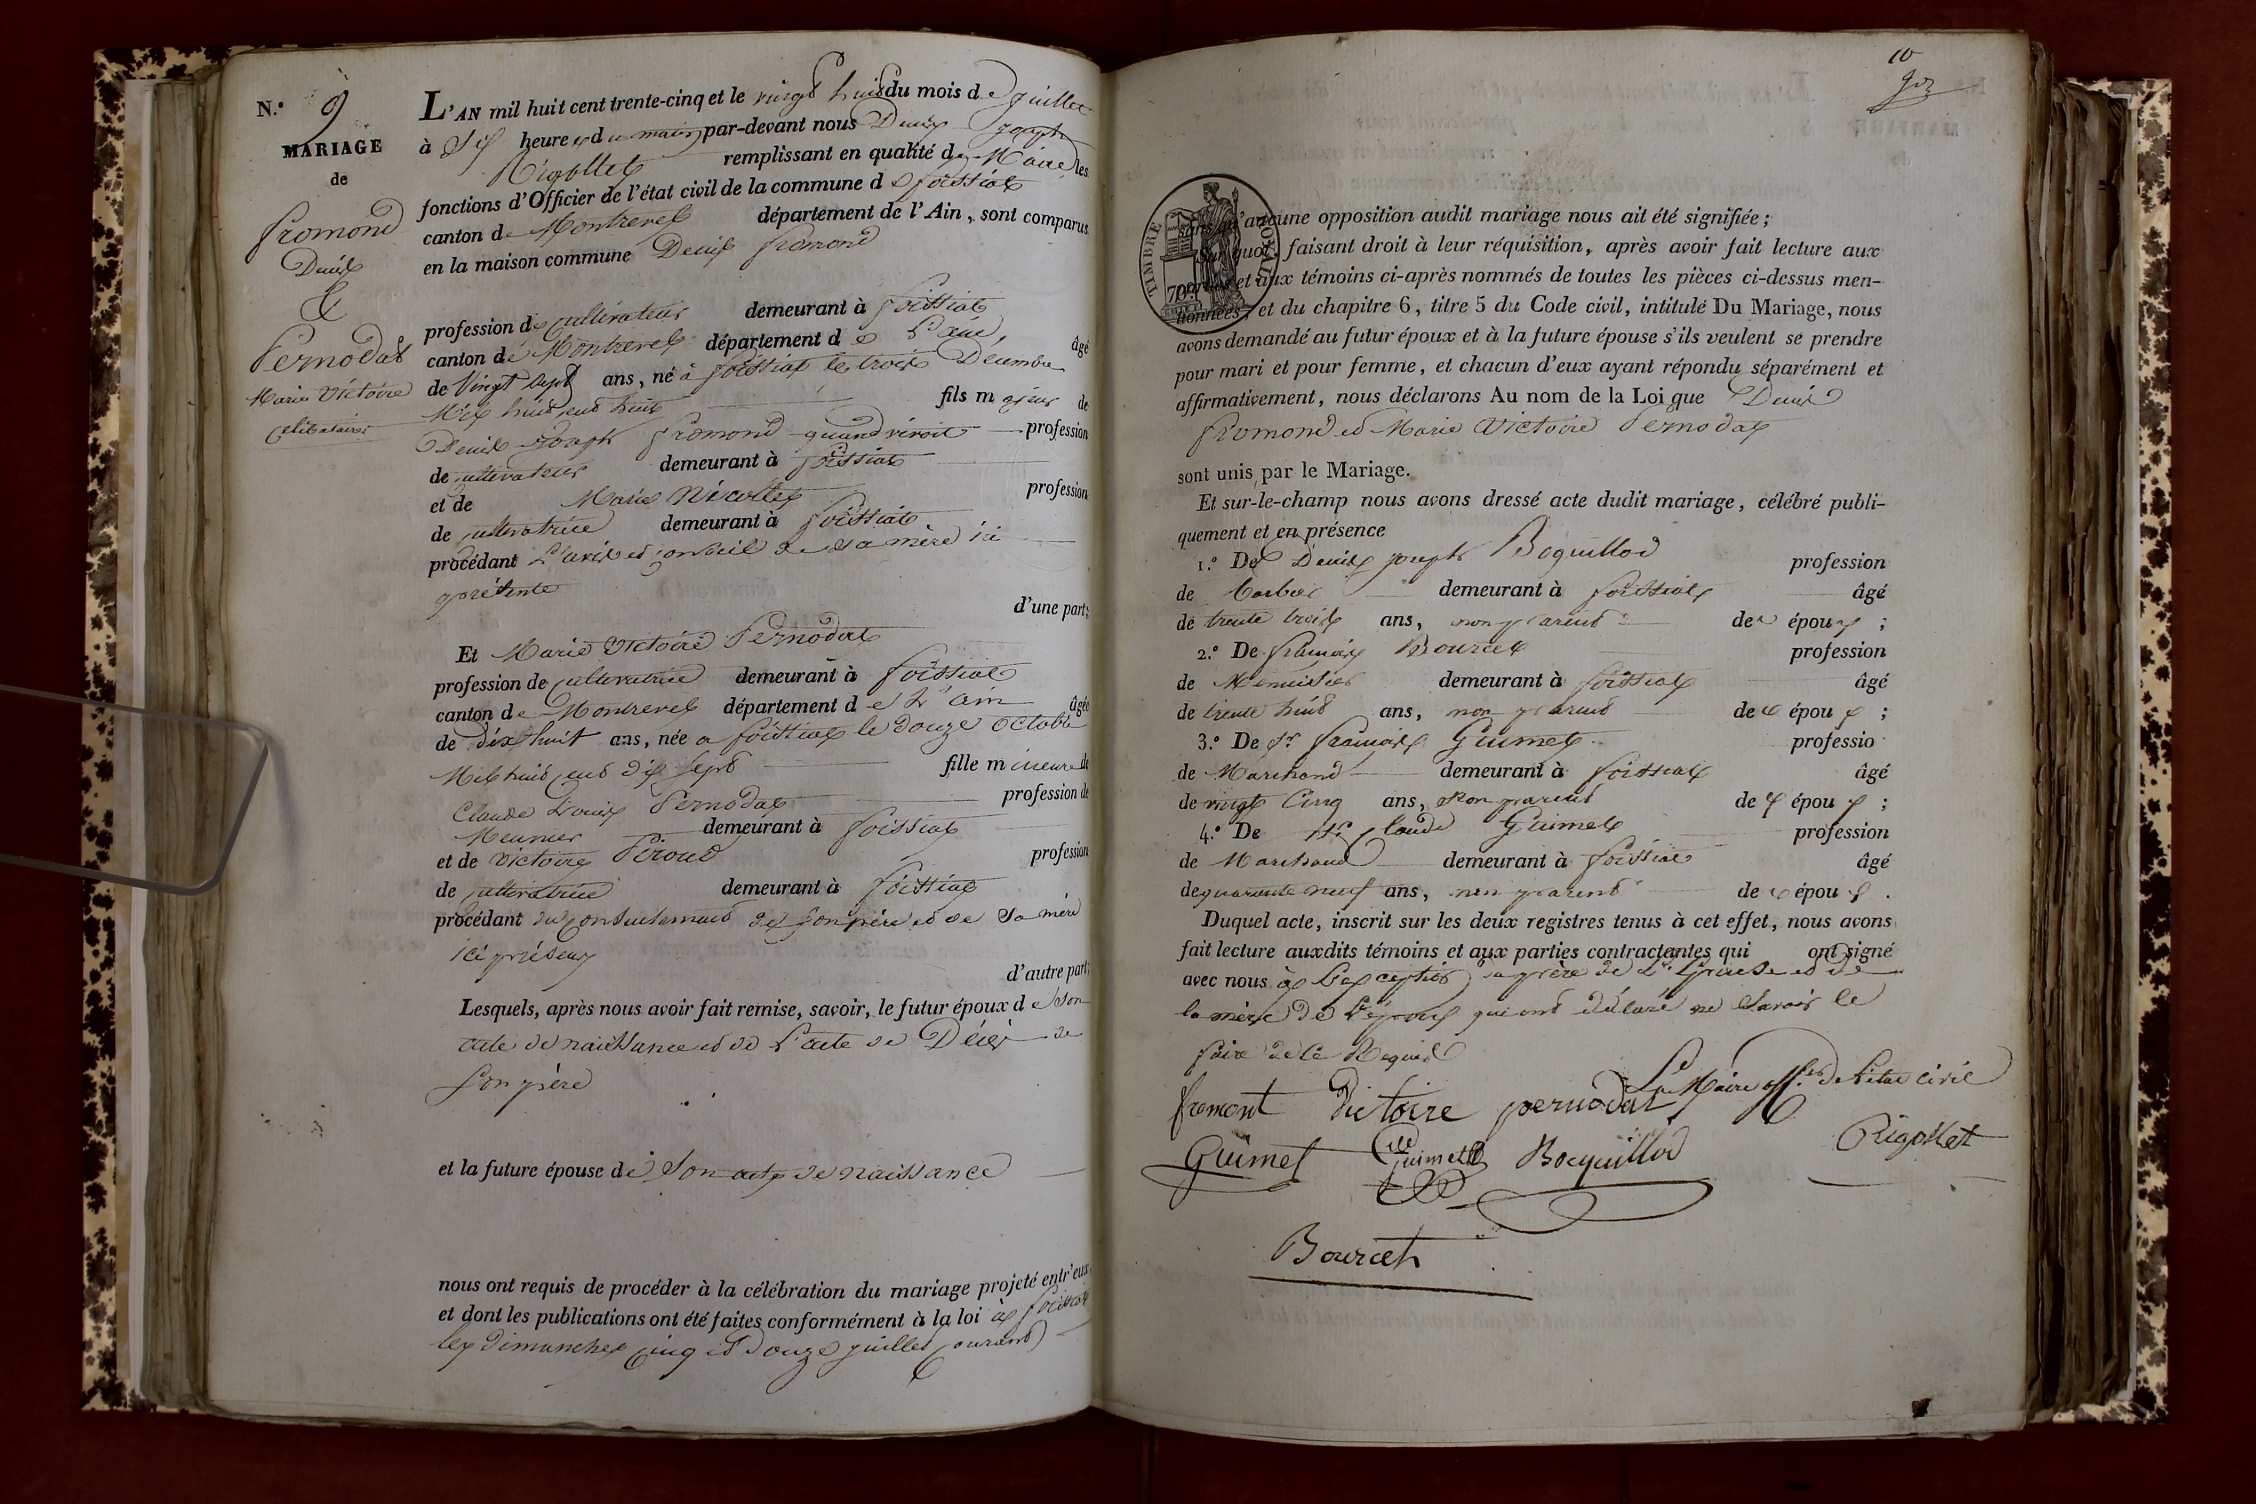 N.º 9
MARIAGE
de
fromond
Denis
&
Pernodat
Marie Victoire
celibataires
L'AN mil huit cent trente-cinq et le vingt huit du mois de juillet
à Six heures du matin par-devant nous Denis Joseph
Rigollet remplissant en qualité de Maire les
fonctions d'Officier de l'état civil de la commune de foissiat
canton de Montrevel département de l'Ain, sont comparus
en la maison commune Denis fromond
profession de cultivateur demeurant à foissiat
canton de Montrevel département de L'ain, âgé
de vingt sept ans, né à foissiat le trois Decembre
Mil huit cent huit fils majeur de
Denis Joseph fromond quand vivoit profession
de cultivateur demeurant à foissiat
et de Marie Nicollet profession
de cultivatrice demeurant à foissiat
procédant L'avis et conseil de sa mère ici
présente
d'une part;
Et Marie Victoire Pernodat
profession de cultivatrice demeurant à foissiat
canton de Montrevel département de L'ain âgée
de dix huit ans, née a foissiat le douze octobre
Mil huit cent dix sept fille mineure de
Claude Louis Pernodat profession de
Meunier demeurant à foissiat
et de victoire Péroud profession
de cultivatrice demeurant à foissiat
procédant du consentement de son père et de sa mère
ici présens
d'autre part;
Lesquels, après nous avoir fait remise, savoir, le futur époux de son
acte de naissance et de L'acte de Décès de
son père
et la future épouse de son acte de naissance
nous ont requis de procéder à la célébration du mariage projeté entr'eux,
et dont les publications ont été faites conformément à la loi à foissiat
les dimanches cinq et douze juillet courant
10
TIMBRE ROYAL
70
sans qu'aucune opposition audit mariage nous ait été signifiée;
Sur quoi, faisant droit à leur réquisition, après avoir fait lecture aux
parties et aux témoins ci-après nommés de toutes les pièces ci-dessus men-
tionnées, et du chapitre 6, titre 5 du Code civil, intitulé Du Mariage, nous
avons demandé au futur époux et à la future épouse s'ils veulent se prendre
pour mari et pour femme, et chacun d'eux ayant répondu séparément et
affirmativement, nous déclarons Au nom de la Loi que Denis
fromond et Marie Victoire Pernodat
sont unis par le Mariage.
Et sur-le-champ nous avons dressé acte dudit mariage, célébré publi-
quement et en présence
1.º De Denis joseph Boquillod profession
de barbier demeurant à foissiat âgé
de trente trois ans, non parent des époux;
2.º De françois Bourcet profession
de Menuisier demeurant à foissiat âgé
de trente huit ans, non parent des époux;
3.º De Sr françois Guimet professio
de Marchand demeurant à foissiat âgé
de vingt cinq ans, non parent des époux;
4.º De Sr Claude Guimet profession
de Marchand demeurant à foissiat âgé
de quarante neuf ans, non parent des époux.
Duquel acte, inscrit sur les deux registres tenus à cet effet, nous avons
fait lecture auxdits témoins et aux parties contractantes qui ont signé
avec nous à L'exception du père de L'épouse et de
la mère de l'époux qui ont déclaré ne Savoir le
faire de ce Requis
Le Maire off.er de L'état civil
fromont Victoire pernodat
Guimet Guimet Bocquillod Rigollet
Bourcet